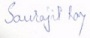 Sourajit Roy